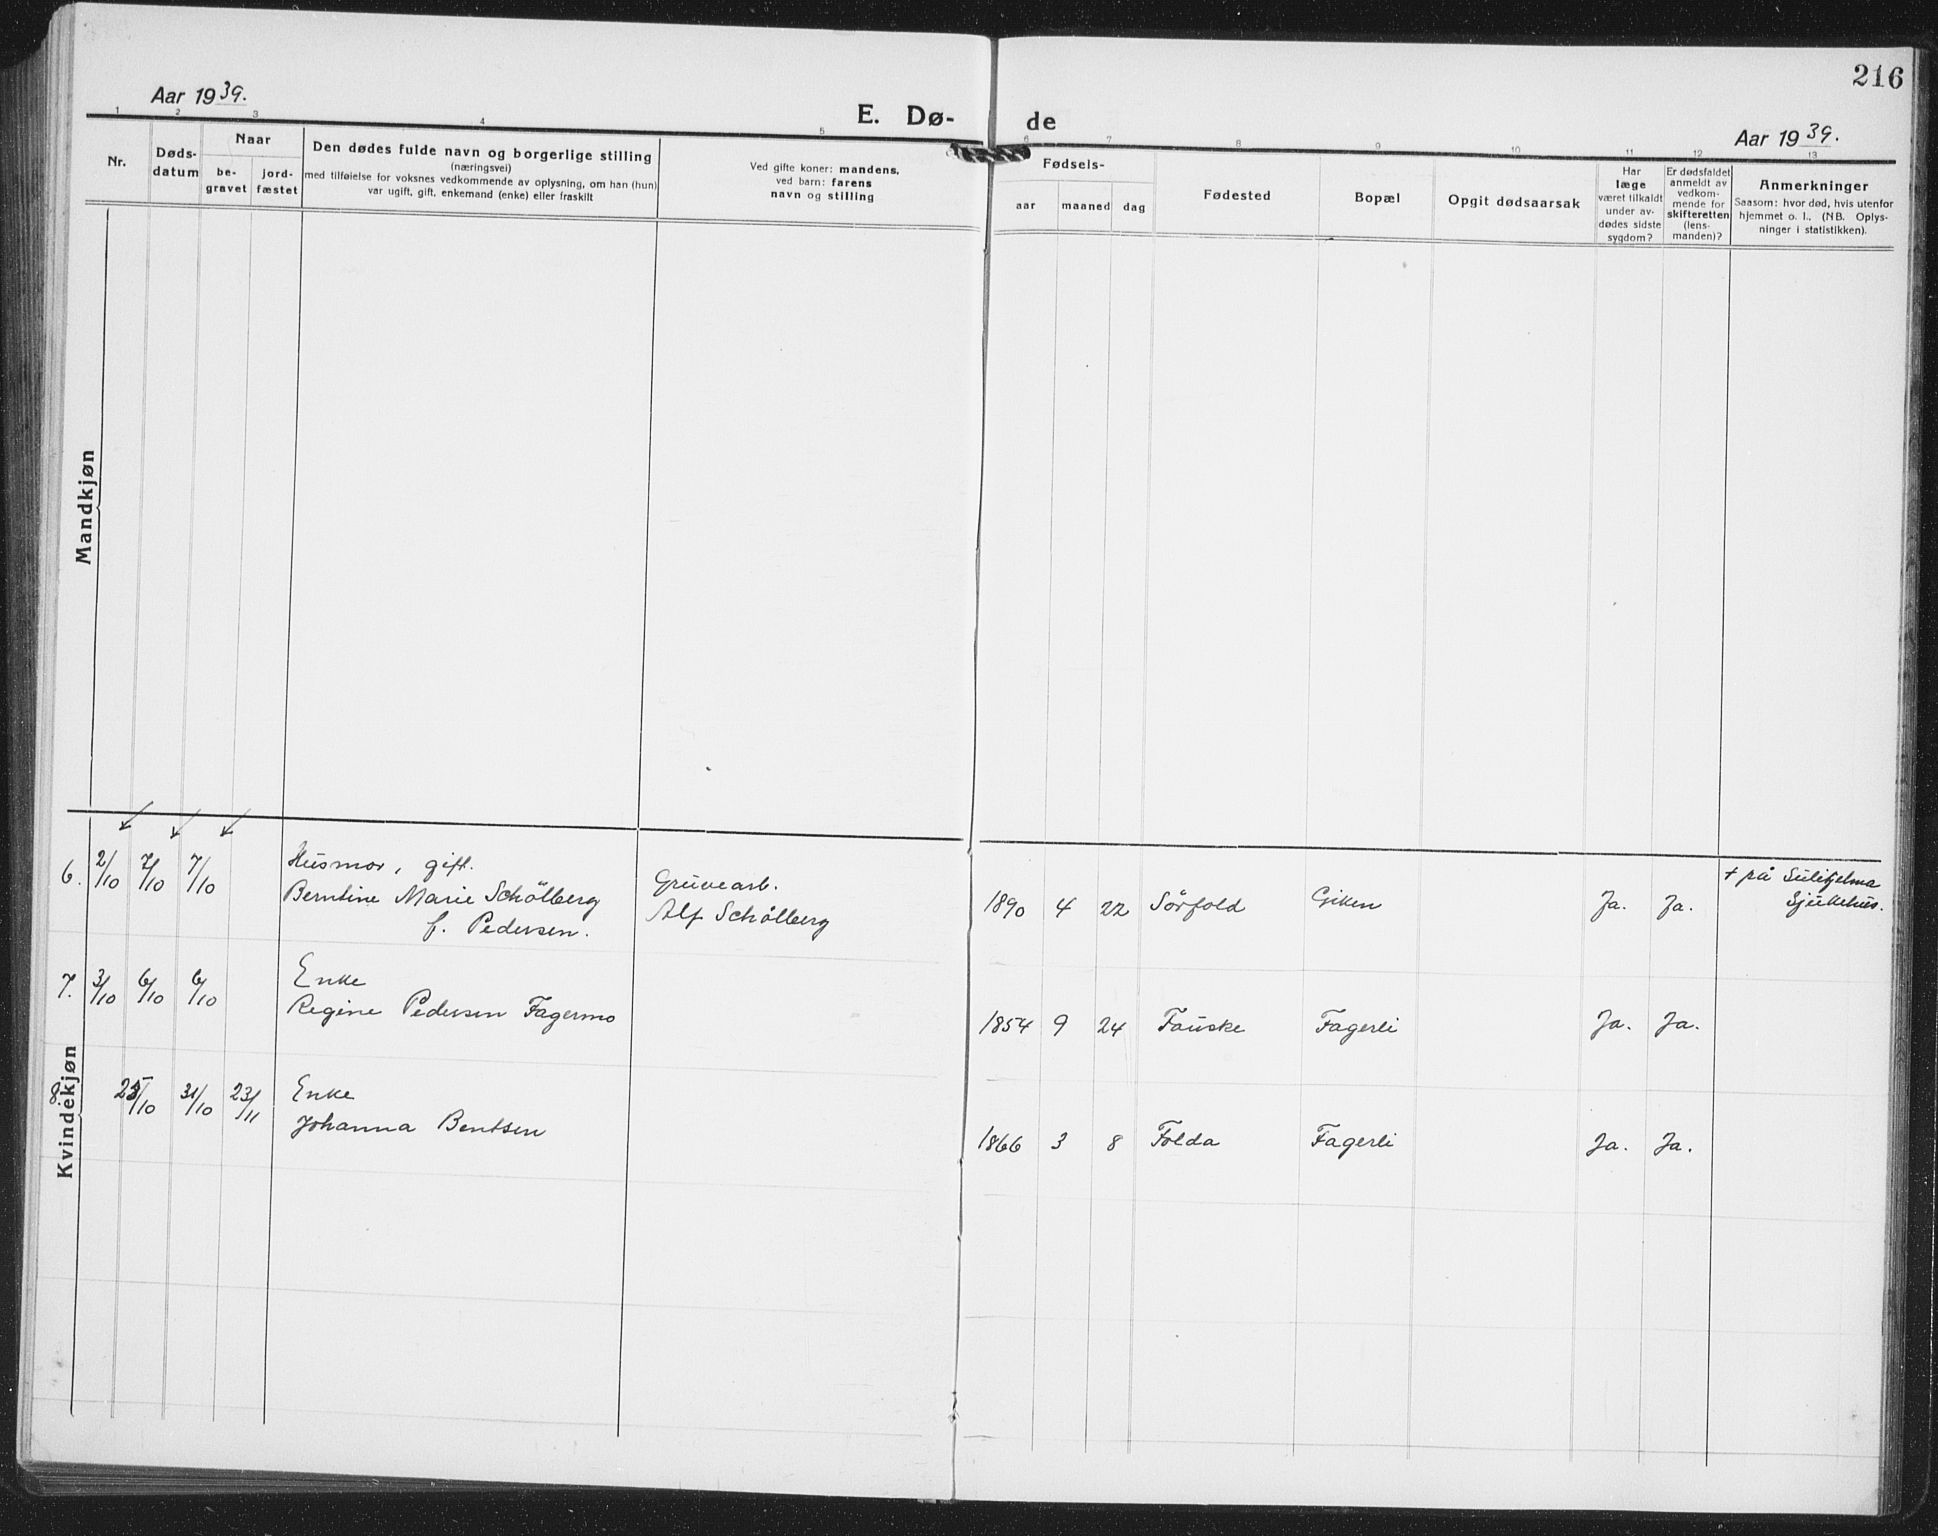 216
Aar 1939.
E. Dø-
de
Aar 1939.
1 2 3 4 5 6 7 8 9 10 11 12 13
Nr.
Døds-
datum
Naar
be-
gravet
jord-
fæstet
Den dødes fulde navn og borgerlige stilling
(næringsvei)
med tilføielse for voksnes vedkommende av oplysning, om han (hun)
var ugift, gift, enkemand (enke) eller fraskilt
Ved gifte koner: mandens,
ved barn: farens
navn og stilling
Fødsels-
aar maaned dag
Fødested
Bopæl
Opgit dødsaarsak
Har
læge
været tilkaldt
under av-
dødes sidste
sygdom?
Er dødsfaldet
anmeldt av
vedkom-
mende for
skifteretten
(lens-
manden)?
Anmerkninger
Saasom: hvor død, hvis utenfor
hjemmet o. l., (NB. Oplys-
ninger i statistikken).
Mandkjøn
Kvindekjøn
6. 2/10 7/10 7/10 Husmor, gift.
Berntine Marie Schölberg
f. Pedersen.
Gruvearb.
Alf Schölberg
1890 4 22 Sörfold Giken Ja. Ja.
+ på Sulitjelma
Sjukehus.
7. 3/10 6/10 6/10 Enke
Regine Pedersen Fagermo
1854 9 24 Fauske Fagerli Ja. Ja.
8. 25/10 31/10 23/11 Enke
Johanna Bentsen
1866 3 8 Folda Fagerli Ja. Ja.